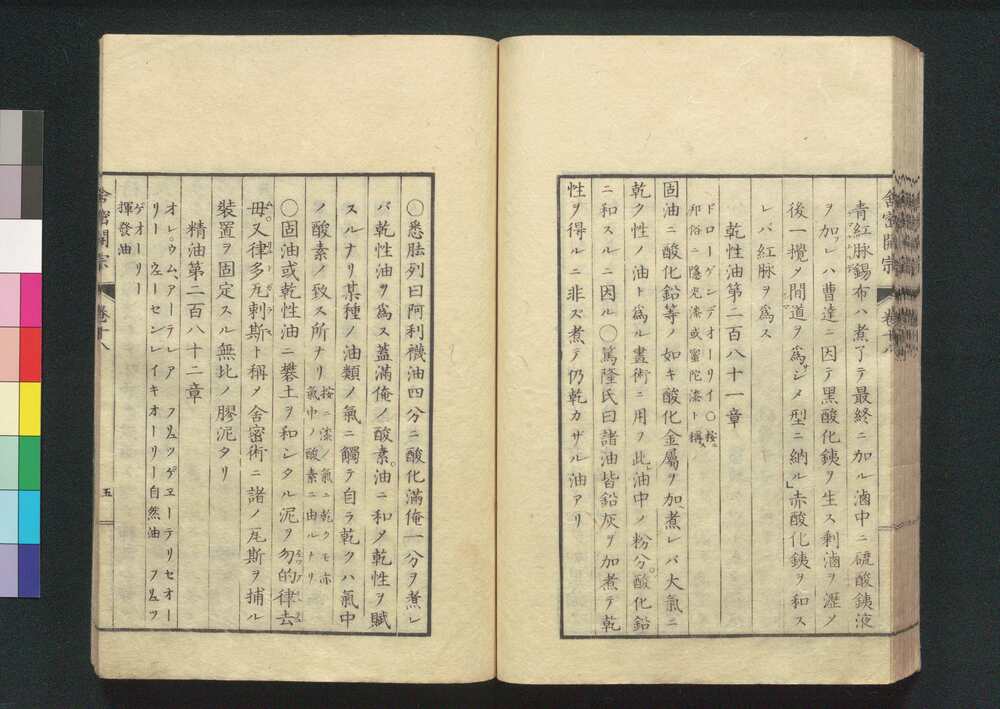 舍密開宗 卷十八
青紅脉錫布ハ煮了テ最終ニ加ル滷中ニ硫酸銕液
ヲ加フレハ曹達ニ因テ黑酸化銕ヲ生ス剩滷ヲ瀝メ
後一攪メ間道ヲ爲サシメ型ニ納ル」赤酸化銕ヲ和ス
レバ紅脉ヲ爲ス
乾性油第二百八十一章
ドローゲンデオーリイ○按ニ
邦俗ニ隱光漆或蜜陀漆ト稱ス
固油ニ酸化鉛等ノ如キ酸化金屬ヲ加、煮レバ大氣ニ
乾ク性ノ油ト爲ル畫術ニ用フ此油中ノ粉分。酸化鉛
ニ和スルニ因ル○篤隆氏曰諸油皆鉛灰ヲ加煮テ乾
性ヲ得ルニ非ズ煮テ仍乾カザル油アリ
○悉胠列曰阿利襪油四分ニ酸化滿俺一分ヲ煮レ
バ乾性油ヲ爲ス蓋滿俺ノ酸素。油ニ和タ乾性ヲ賦
スルナリ某種ノ油類ノ氣ニ觸テ自ラ乾クハ氣中
ノ酸素ノ致ス所ナリ
按ニ漆ノ氣ニ乾クモ亦
氣中ノ酸素ニ由ルナリ
○固油或乾性油ニ礬土ヲ和シタル泥ヲ勿的律去
毋。又律多瓦剌斯ト稱メ舍密術ニ諸ノ瓦斯ヲ捕ル
裝置ヲ固定スル無比ノ膠泥タリ
精油第二百八十二章
オレウム、アーテレア フルツゲヱーテリセオー
リー ウェーセンレイキオーリー自然油 フルツ
ゲオーリー
揮發油
舍密開宗 卷十八 五